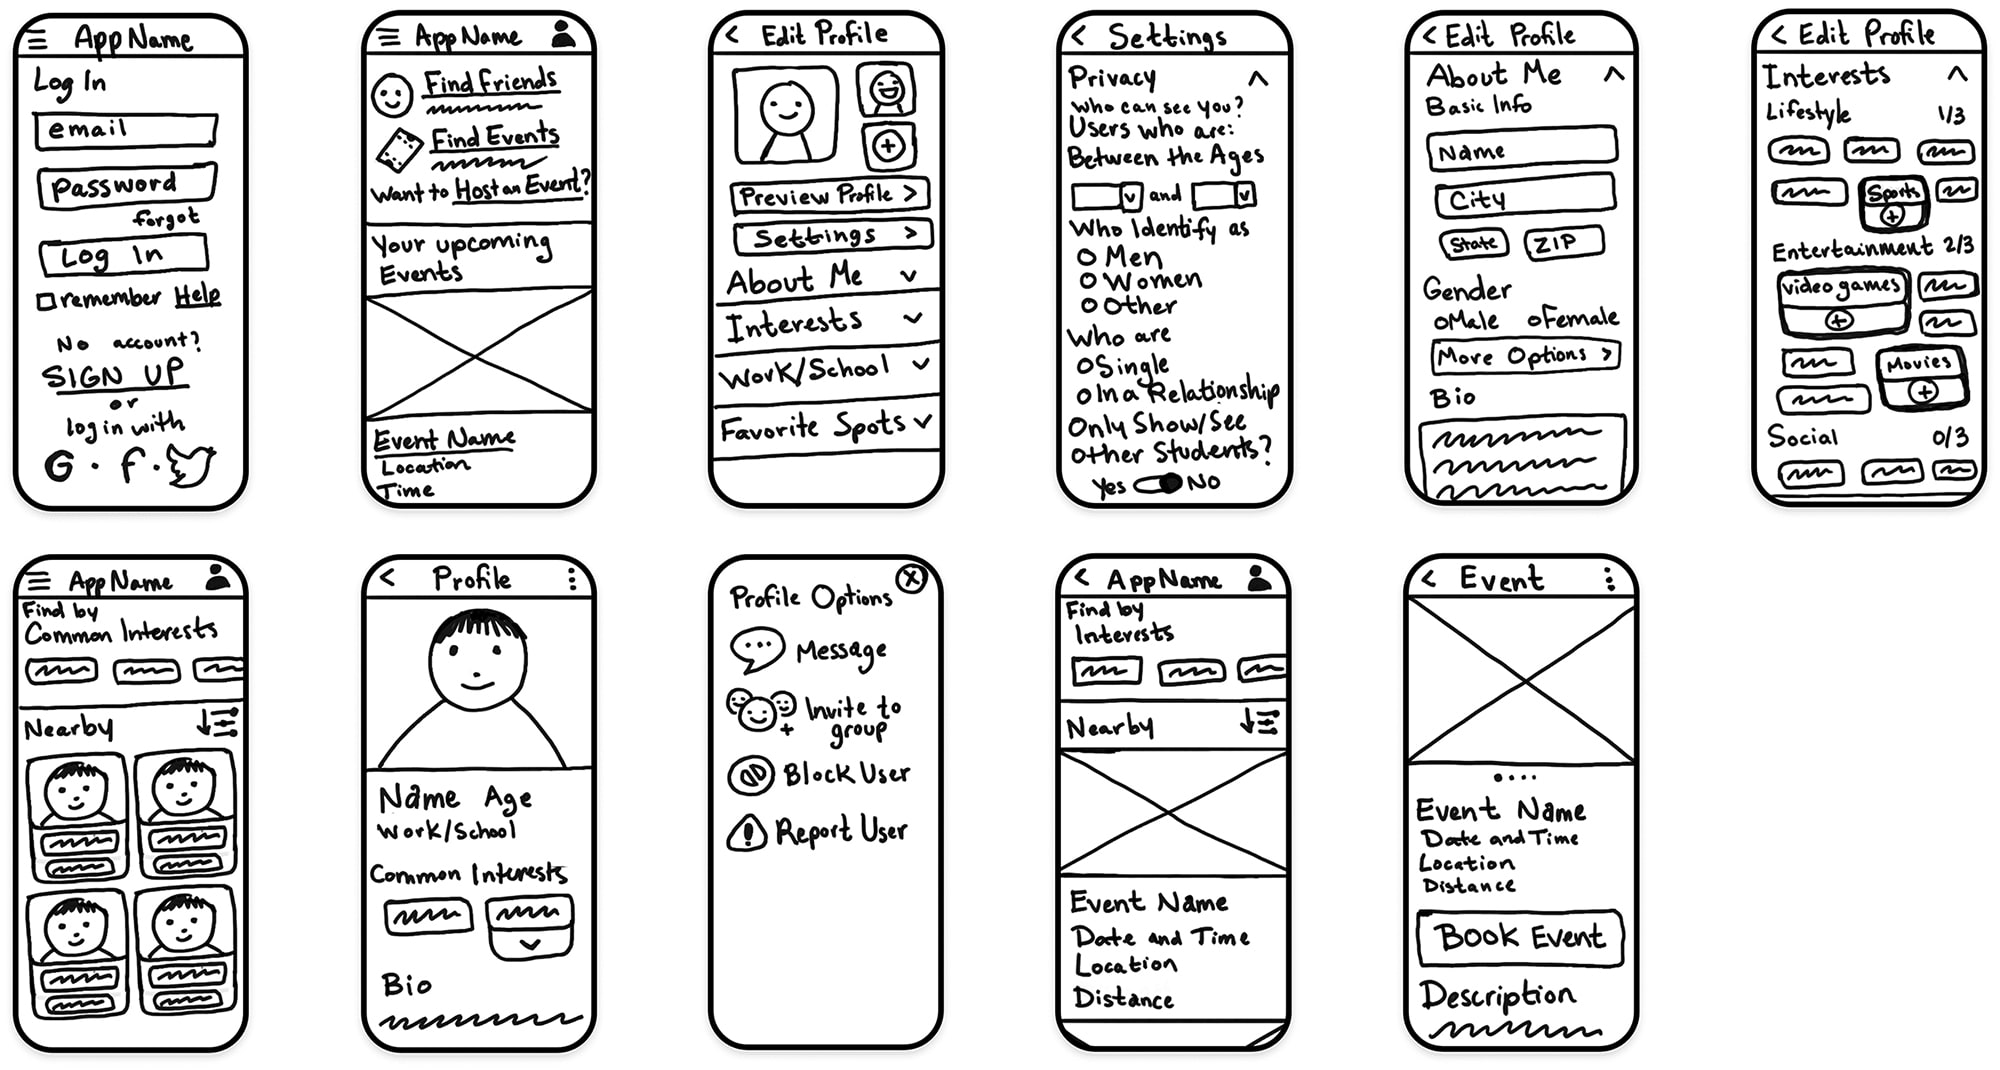 App Name
Log In
email
password
forgot
Log In
remember Help
No account?
SIGN UP
or
log in with
G · f ·
App Name
Find Friends
Find Events
Want to Host an Event?
Your upcoming
Events
Event Name
Location
Time
< Edit Profile
Preview Profile >
Settings >
About Me
Interests
Work/School
Favorite Spots
< Settings
Privacy
Who can see you?
Users who are:
Between the Ages
and
Who Identify as
Men
Women
Other
Who are
Single
In a Relationship
Only Show/See
Other Students?
Yes NO
< Edit Profile
About Me
Basic Info
Name
City
State ZIP
Gender
Male Female
More Options >
Bio
< Edit Profile
Interests
Lifestyle 1/3
Sports
Entertainment 2/3
video games
Movies
Social 0/3
App Name
Find by
Common Interests
Nearby
< Profile
Name Age
Work/School
Common Interests
Bio
Profile Options
Message
Invite to
group
Block User
Report User
< App Name
Find by
Interests
Nearby
Event Name
Date and Time
Location
Distance
< Event
Event Name
Date and Time
Location
Distance
Book Event
Description